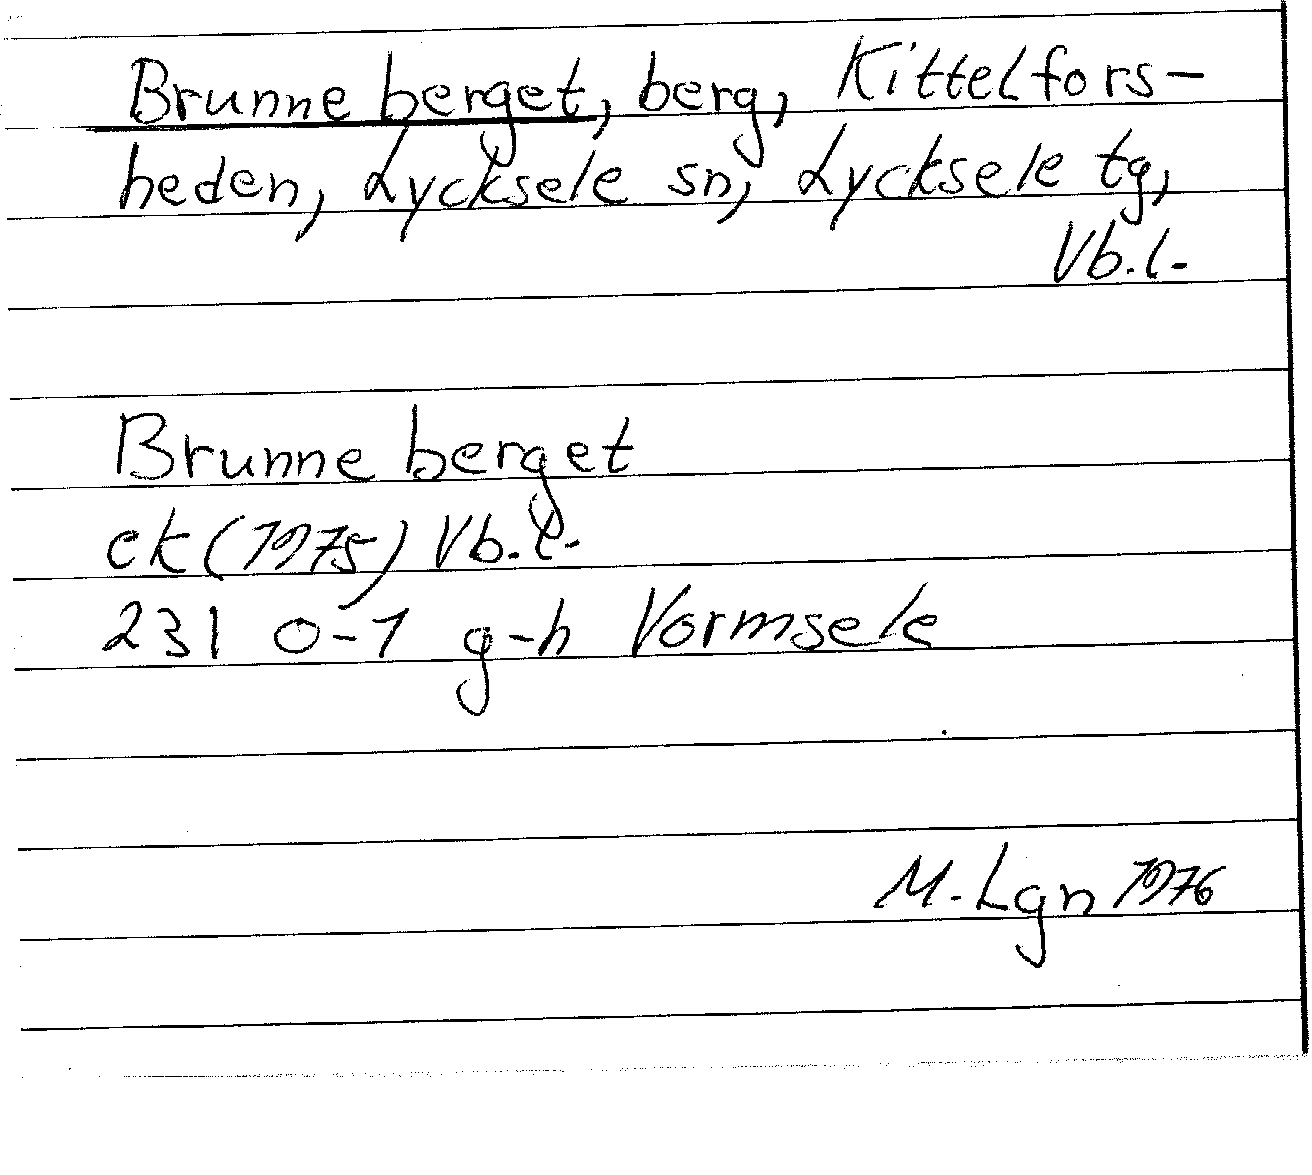 Brunneberget, berg, Kittelfors-
heden, Lycksele sn, Lycksele tg,
Vb.l.
Brunneberget
ek (1975) Vb.l.
231 0-1 g-h Vormsele
M. Lgn 1976